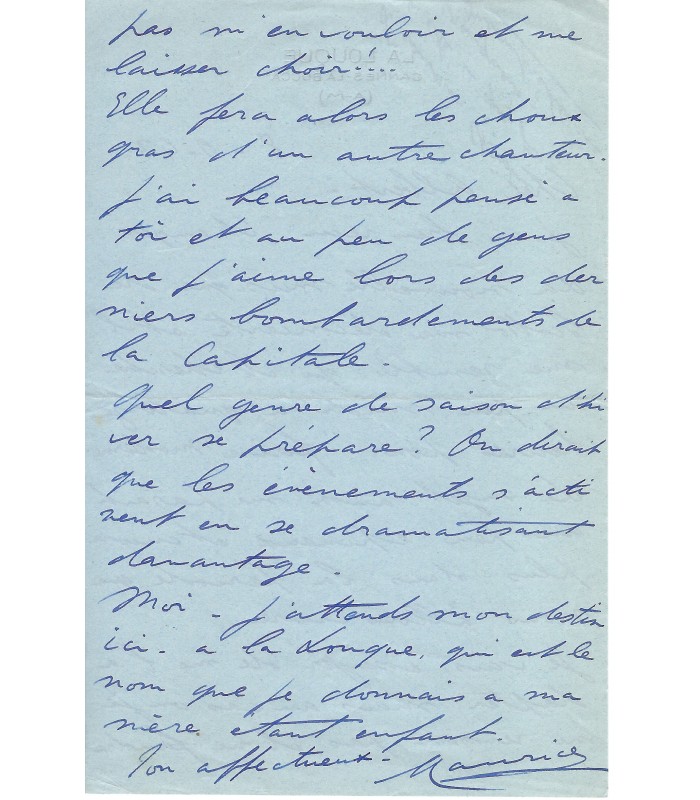 pas m'en vouloir et me
laisser choir!....
Elle fera alors les choux
gras d'un autre chanteur.
J'ai beaucoup pensé a
toi et au peu de gens
que j'aime lors des der
niers bombardements de
la Capitale.
Quel genre de saison d'hi
ver se prépare? On dirait
que les évènements s'acti
vent en se dramatisant
davantage.
Moi - j'attends mon destin
ici - a la Louque, qui est le
nom que je donnais a ma
mère étant enfant.
Ton affectueux - Maurice